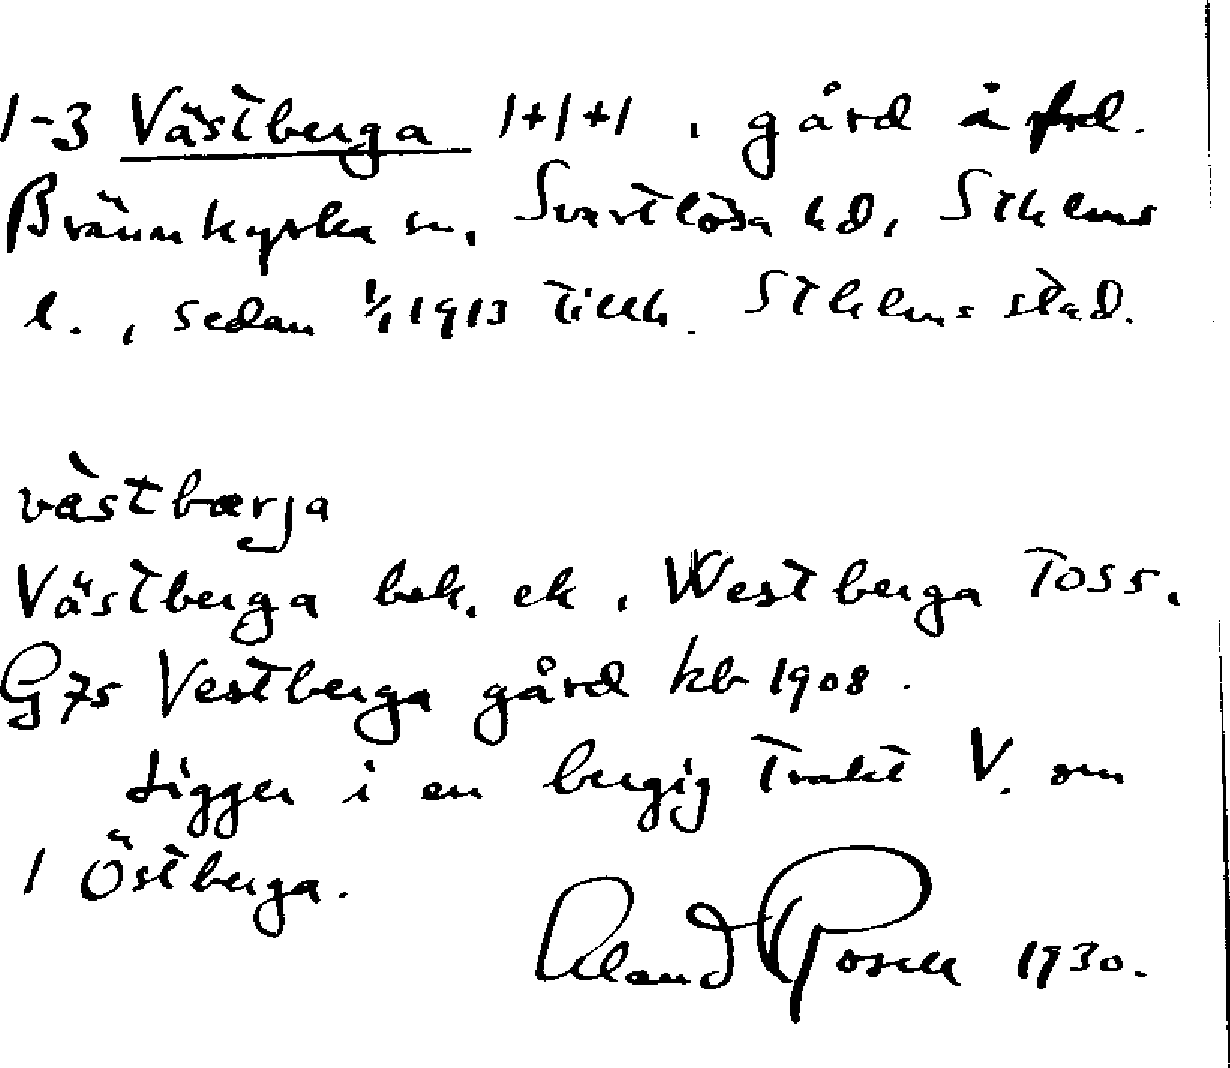 1-3 Västberga 1+1+1, gård i f.d.
Brännkyrka sn, Svartlösa hd, Sthlms
l., sedan 1/1 1913 tillh. Sthlms stad.
västbærja
Västberga bek. ek, Westberga Toss.
G75 Vestberga gård kb 1908.
Ligger i en bergig trakt V. om
1 Östberga.
Rosell 1930.